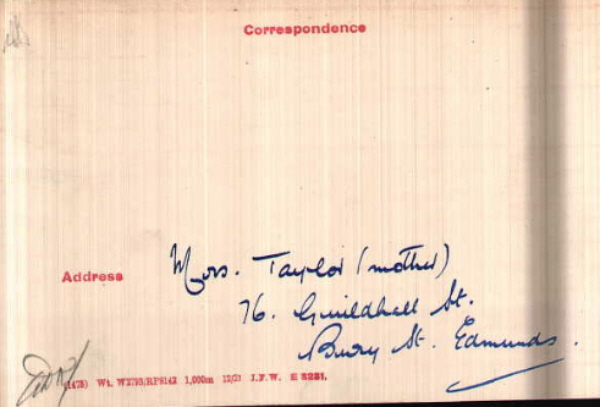 Correspondence
Address
Mrs. Taylor (mother)
76. Guildhall St.
Bury St. Edmunds.
(1473) Wt. W2793/RP5142 1,000m 12/21 J.F.W. E 5231.